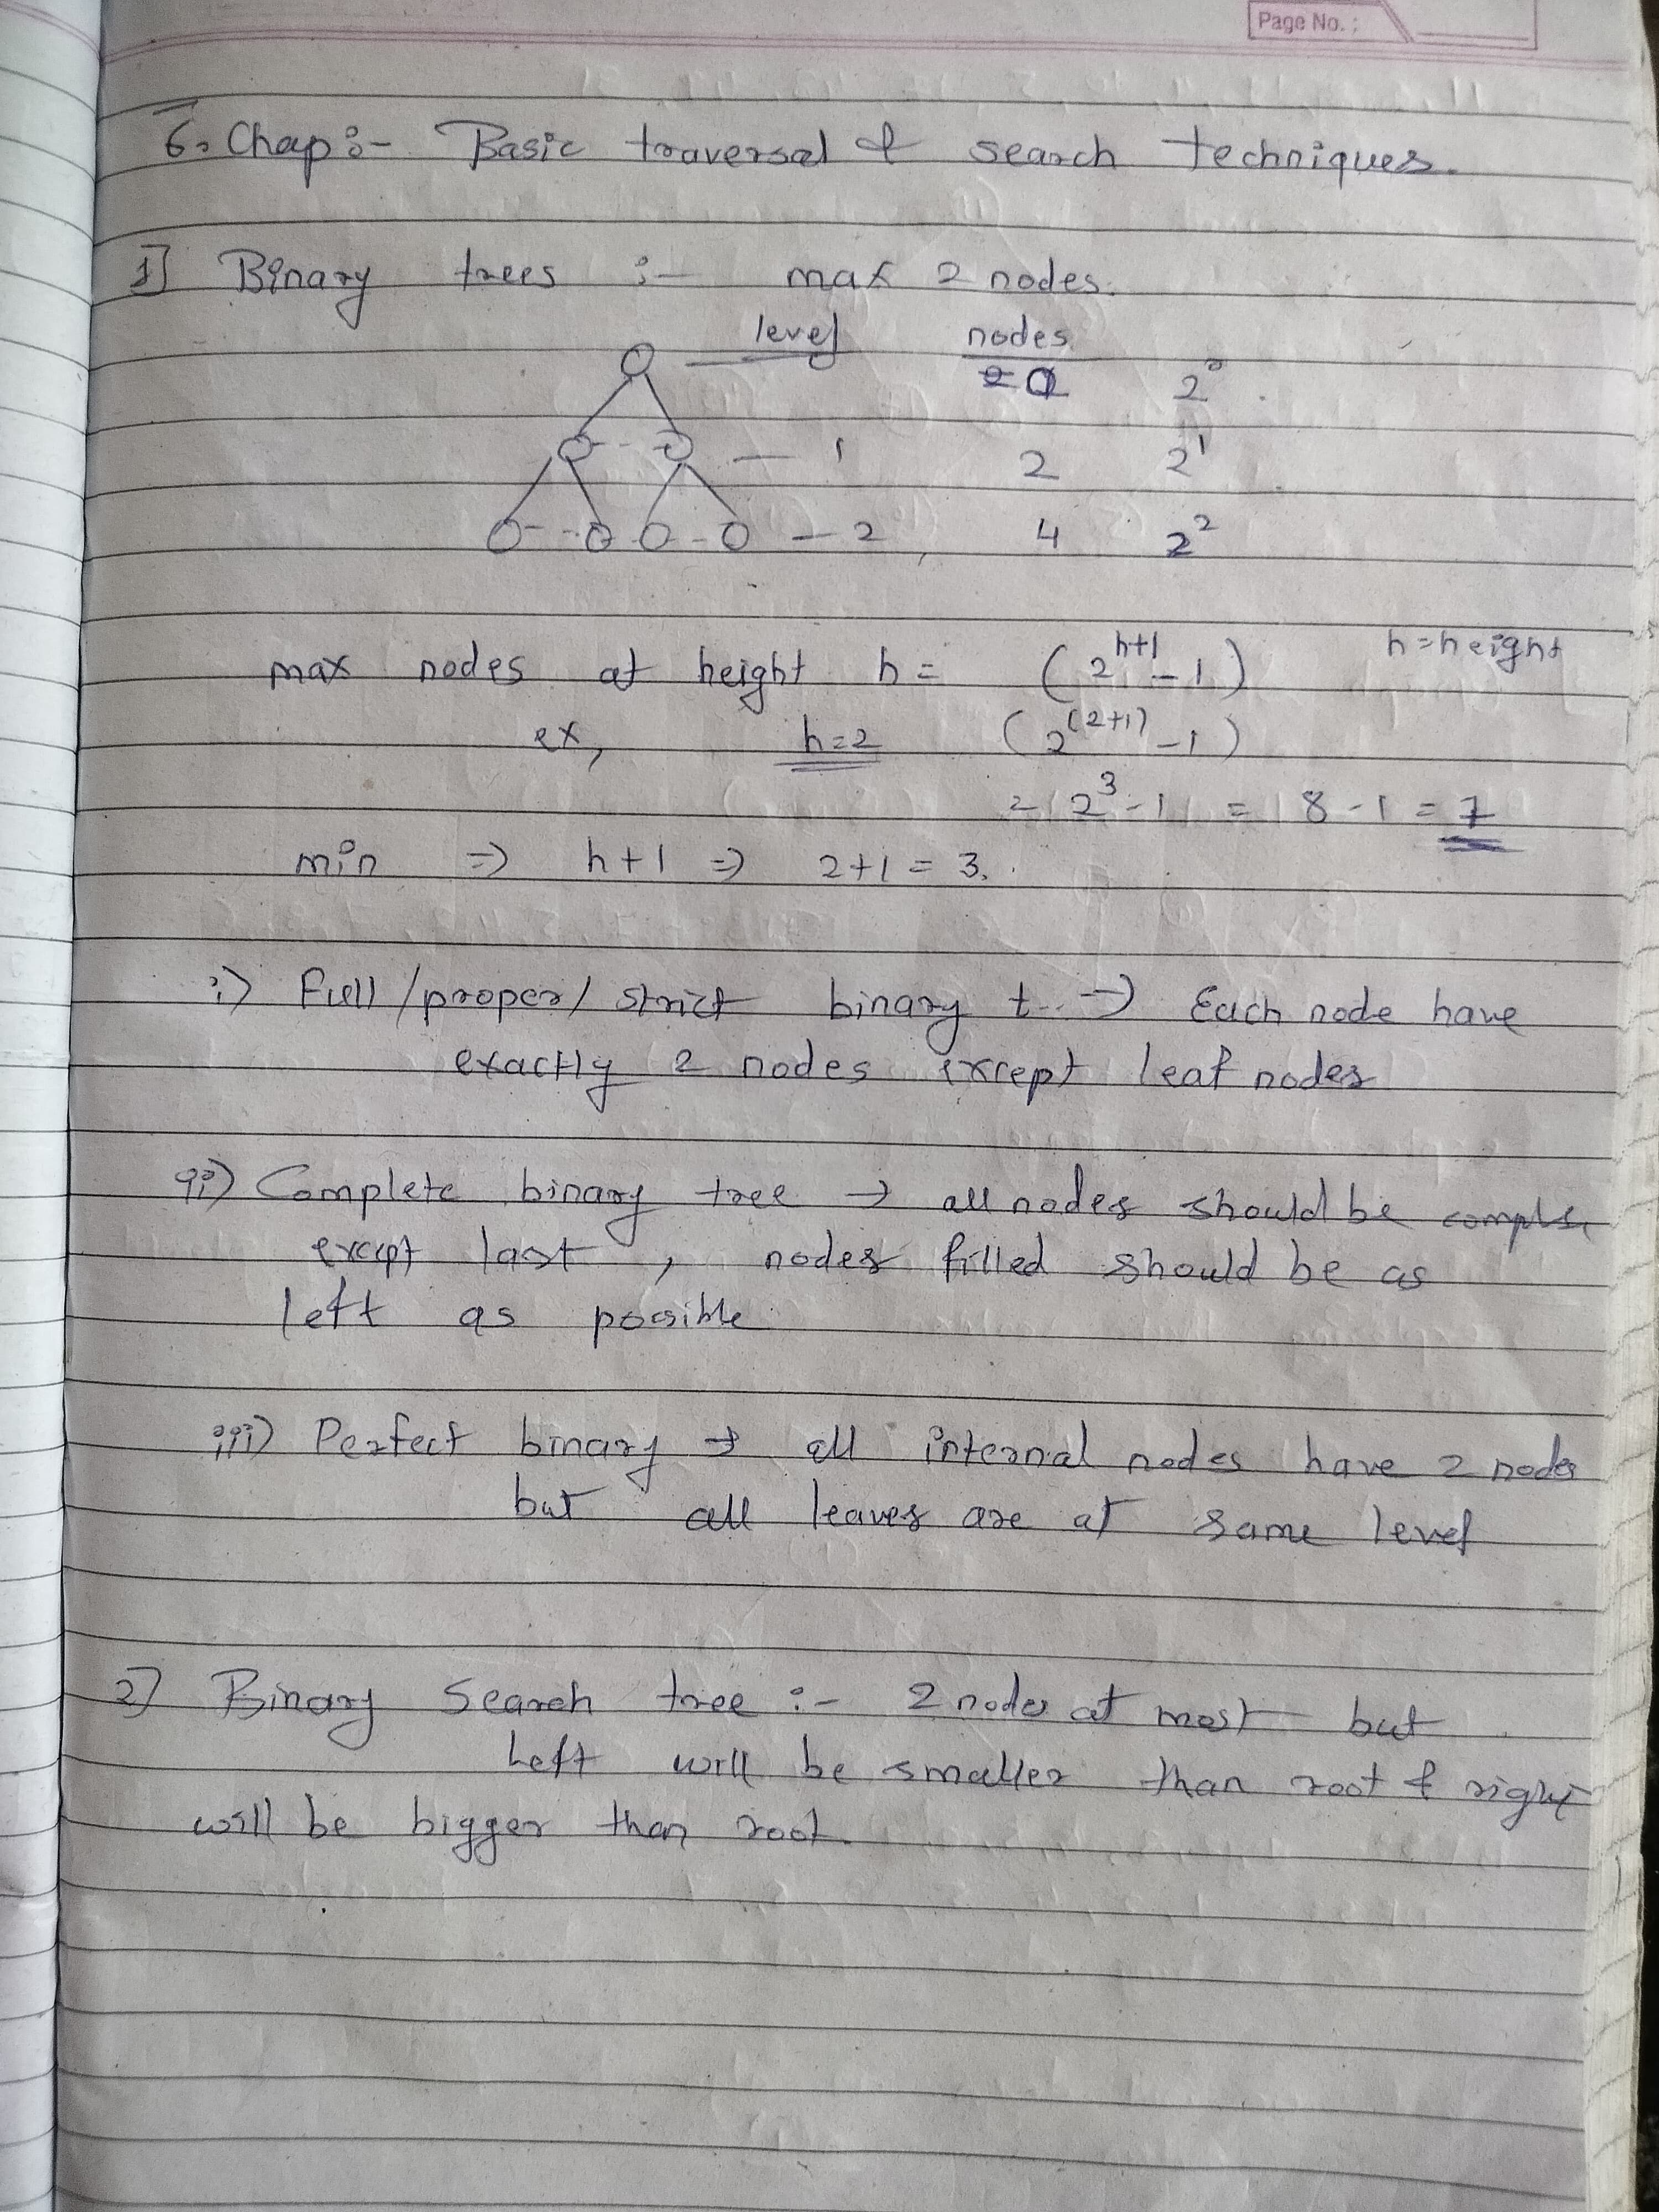 Page No. :
6. Chap :- Basic traversal & search techniques.
1] Binary trees :- max 2 nodes.
level nodes
2⁰
— 1 2 2¹
— 2 4 2²
max nodes at height h = (2^h+1 - 1) h = height
ex, h=2 (2^(2+1) - 1)
= 2³ - 1 = 8 - 1 = 7
min => h+1 => 2+1 = 3.
i) Full/proper/strict binary t. -> Each node have
exactly 2 nodes except leaf nodes
ii) Complete binary tree -> all nodes should be
except last, nodes filled should be as
left as possible
iii) Perfect binary -> all internal nodes have 2 nodes
but all leaves are at same level
2] Binary Search tree :- 2 nodes at most but
Left will be smaller than root & right
will be bigger than root.